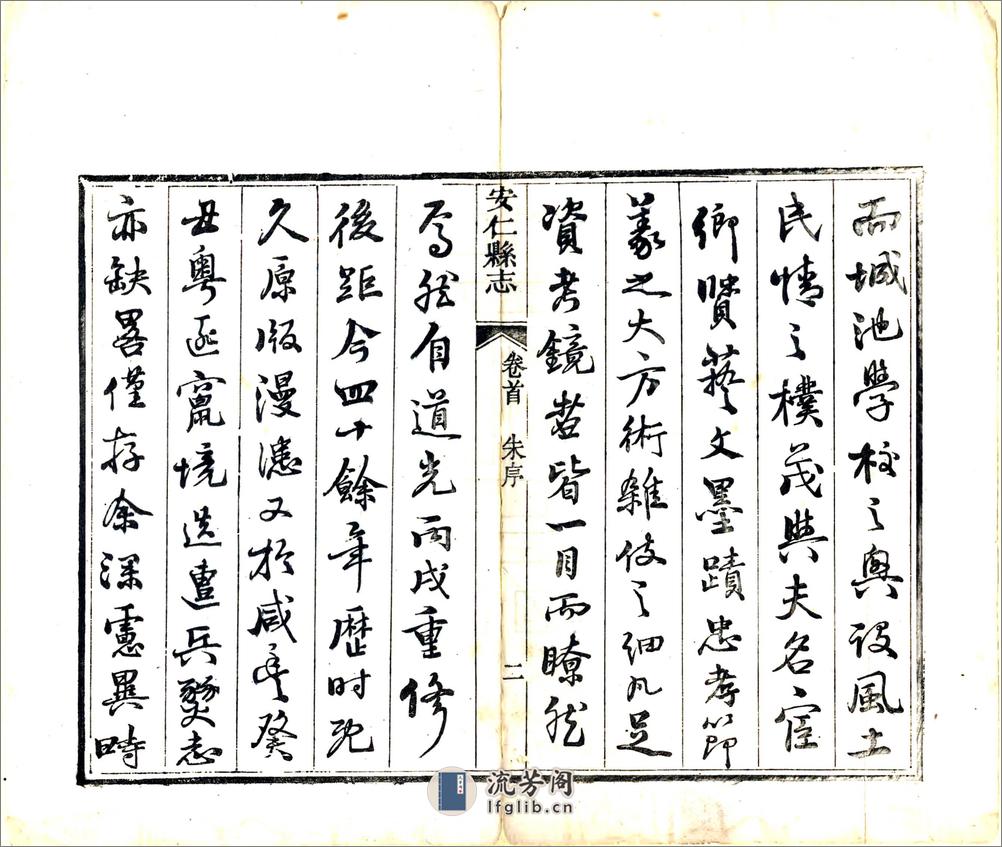 而城池學校之興設風土
民情之樸茂與夫名宦
鄉賢藝文墨蹟忠孝節
義之大方術雜伎之細凡足
資考鏡者皆一目而瞭然
安仁縣志
卷首 朱序
二
焉然自道光丙戌重修
後距今四十餘年歷時既
久原版漫漶又於咸豐癸
丑粵匪竄境迭遭兵燹志
亦缺畧僅存余深慮異時
流芳阁
lfglib.cn